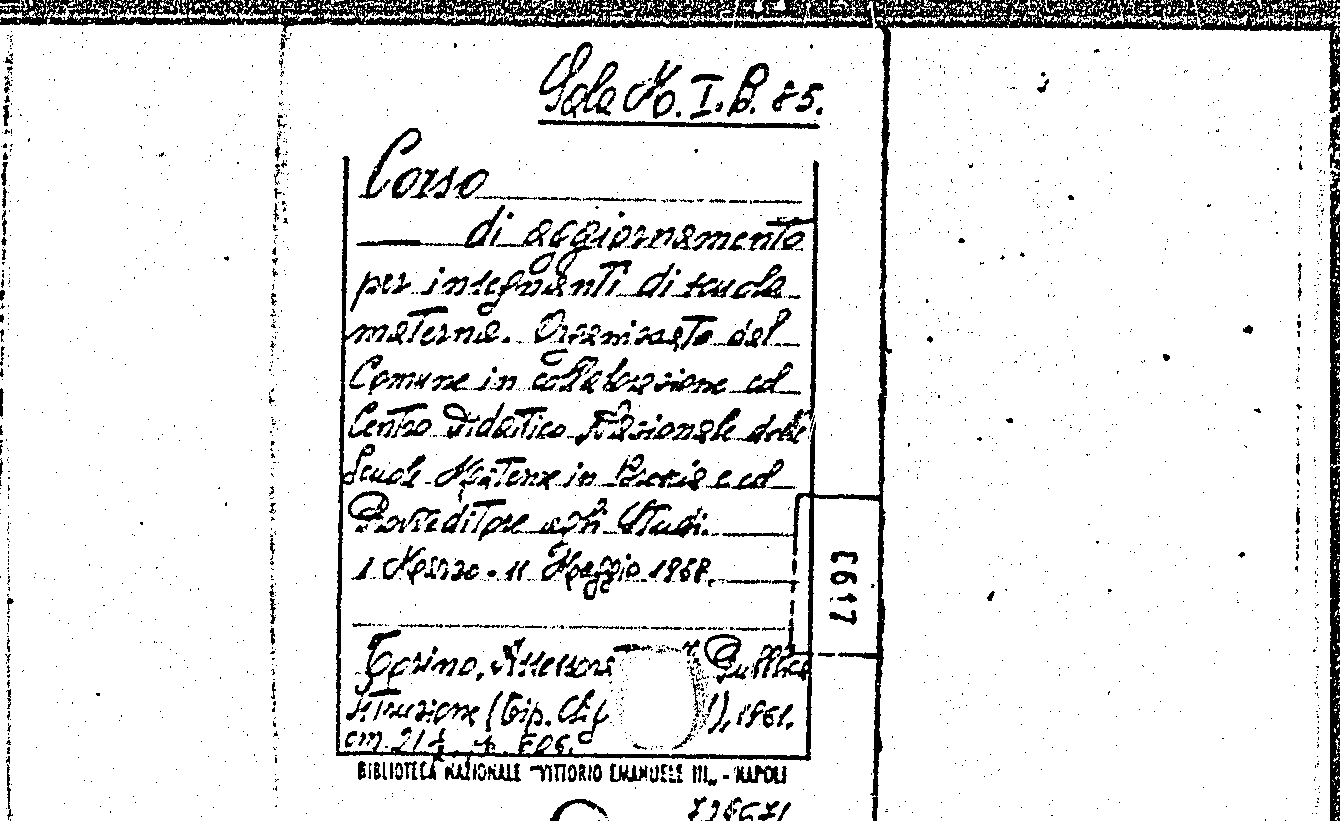 Sala M. I. B. 85.
Corso
di aggiornamento
per insegnanti di scuola
materna. Organizzato dal
Comune in collaborazione col
Centro Didattico Nazionale delle
Scuole Materne in Brescia e col
Provveditore agli Studi.
1 Marzo - 11 Maggio 1968.
Torino, Assessora Pubblica
Istruzione (Tip.
cm 21
BIBLIOTECA NAZIONALE "VITTORIO EMANUELE III„ - NAPOLI